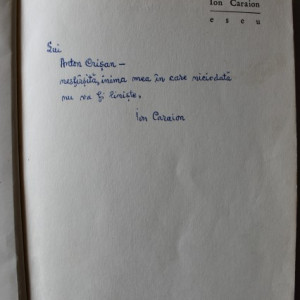 Ion Caraion
eseu
Lui
Anton Crișan —
nesfârșită, inima mea în care niciodată
nu va fi liniște.
Ion Caraion